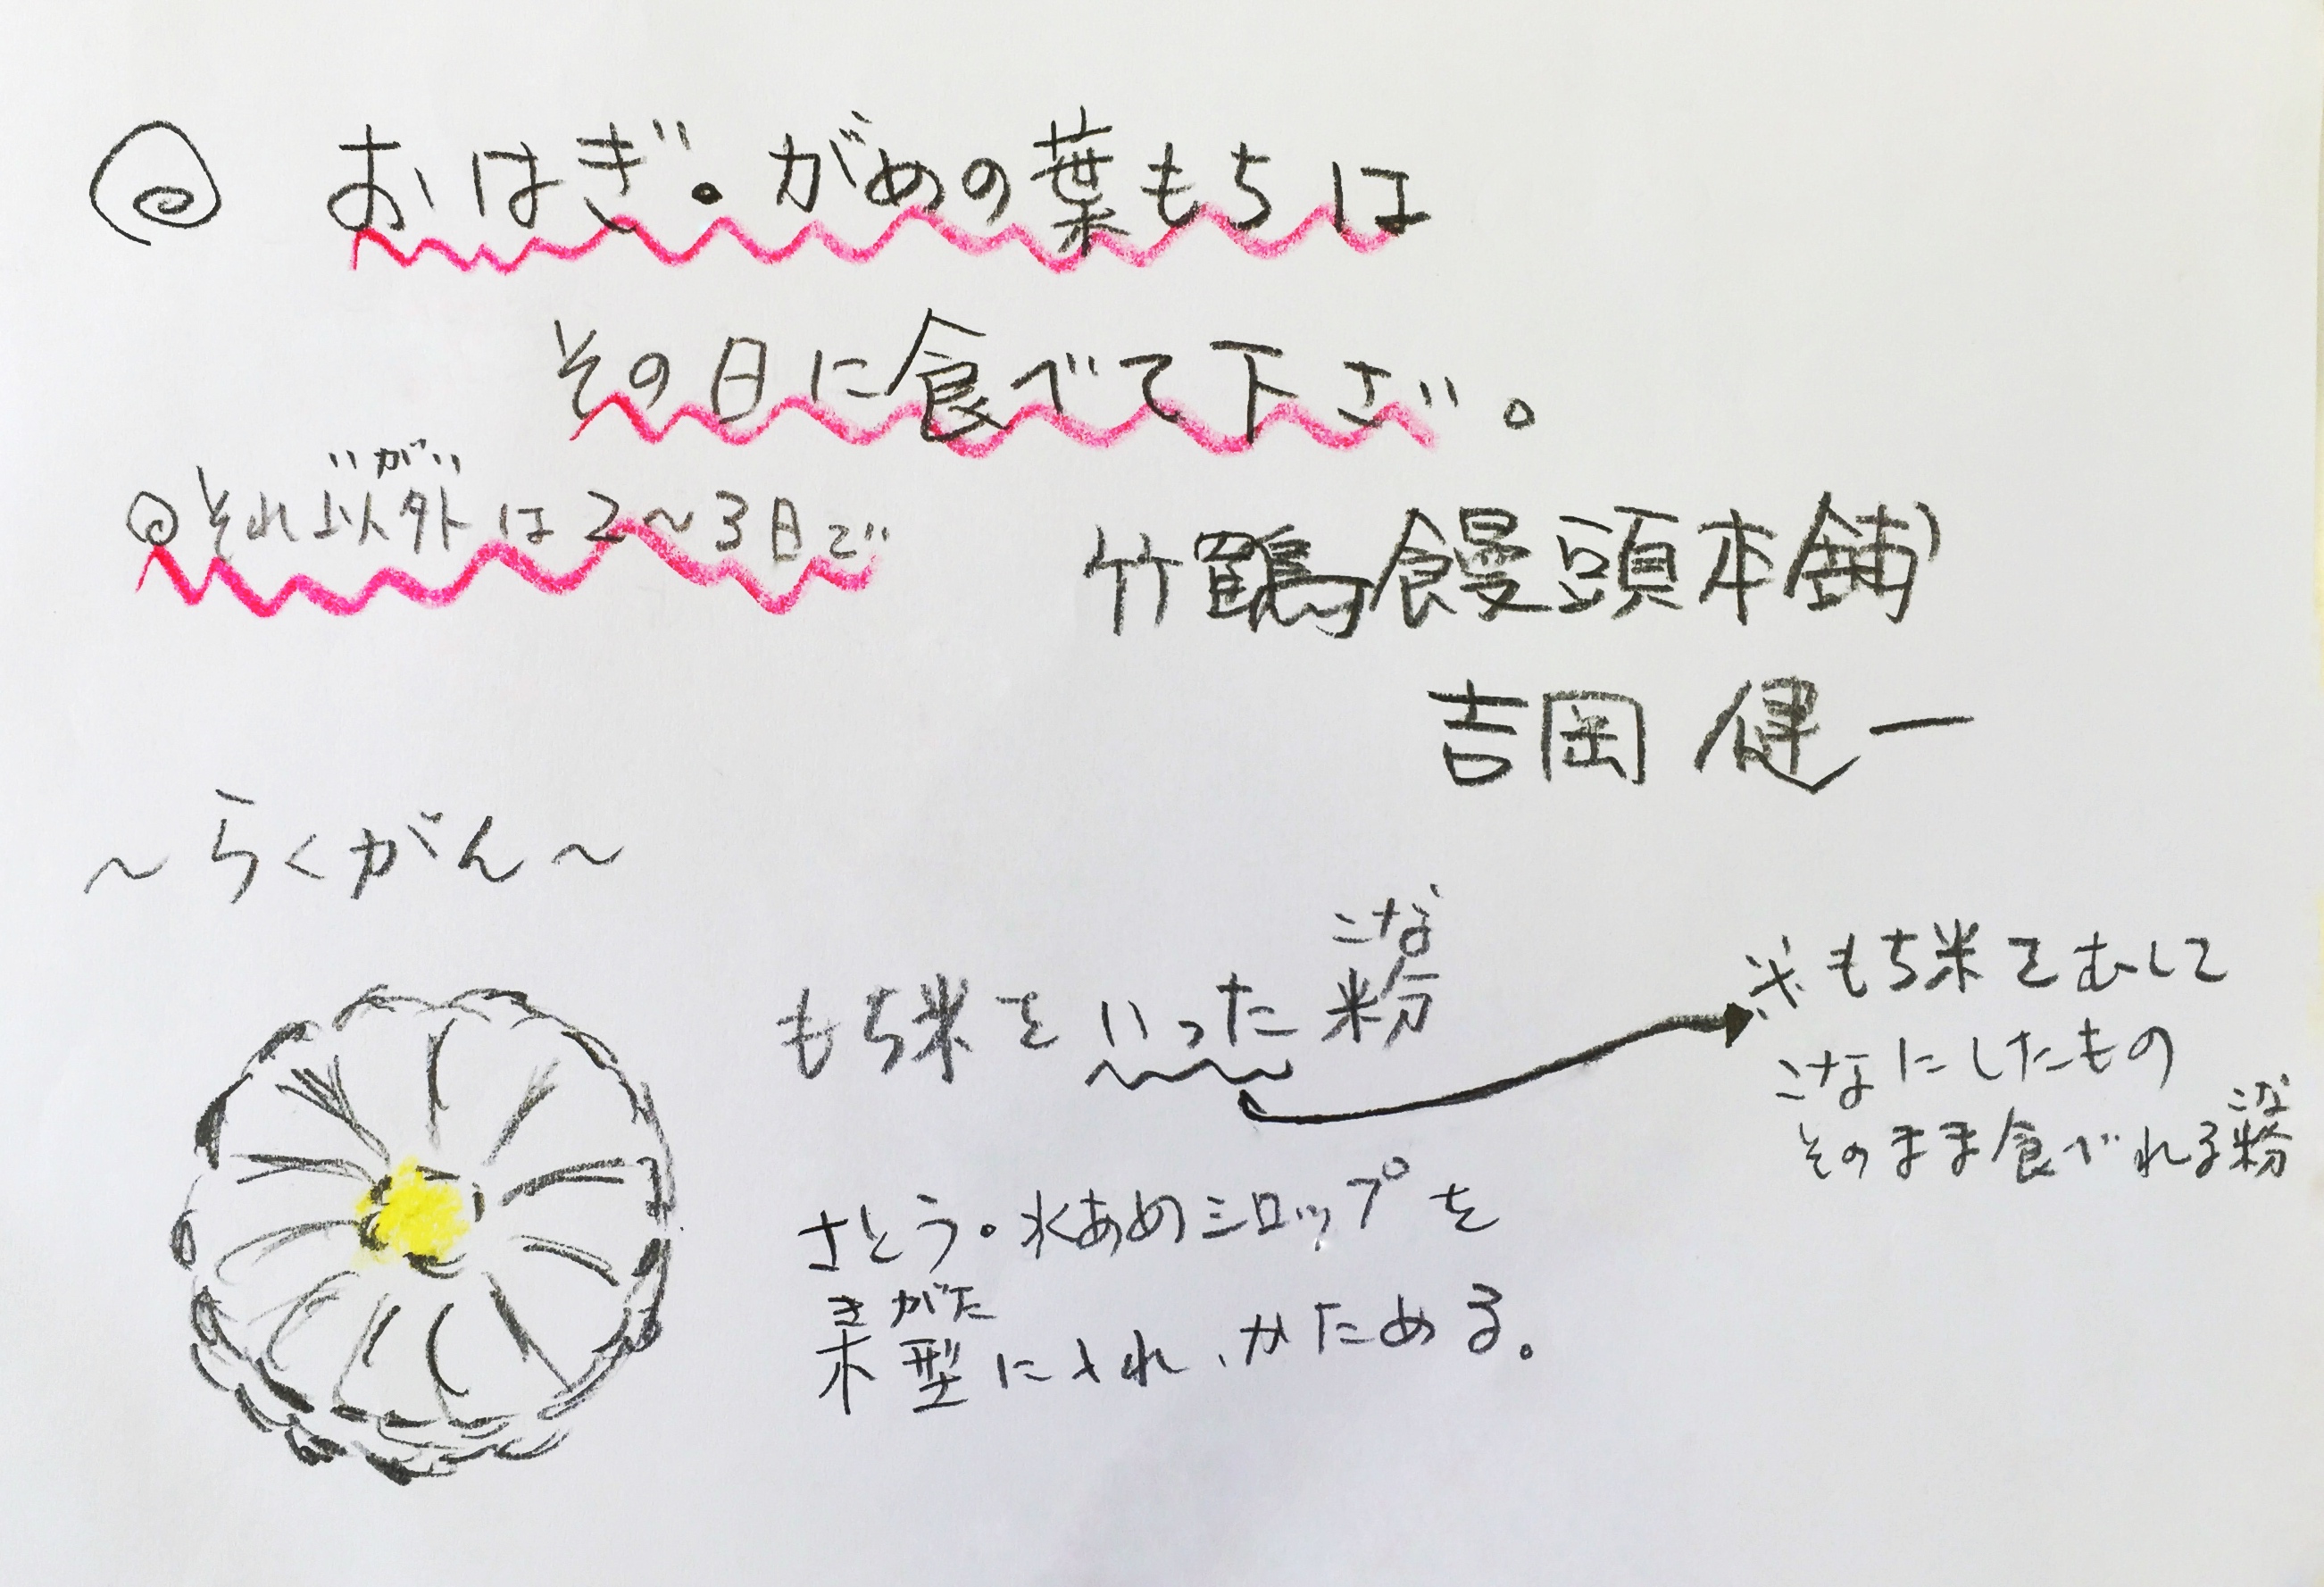 ◎ おはぎ・がめの葉もちは
その日に食べて下ざい。
いがい
◎それ以外は2〜3日で
竹鶴饅頭本舗
吉岡 健一
〜らくがん〜
こな
もち米をいった粉
※もち米をむして
こなにしたもの
こな
そのまま食べれる粉
さとう・水あめシロップを
きがた
木型に入れ、かためる。